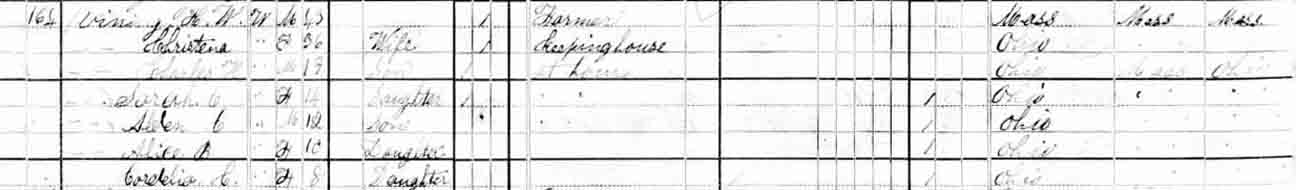 164 Vining, H. W. W M 1 Farmer Mass Mass Mass
— — Christena " F 36 Wife 1 Keeping house Ohio
— — Charles W " M 19 Son 1 at home Ohio Mass Ohio
— — Sarah C. " F 14 Daughter 1 " " 1 Ohio " "
— — Alden C " M 12 Son " 1 Ohio
— — Alice " F 10 Daughter 1 Ohio
Cordelia C. " F 8 Daughter 1 Ohio